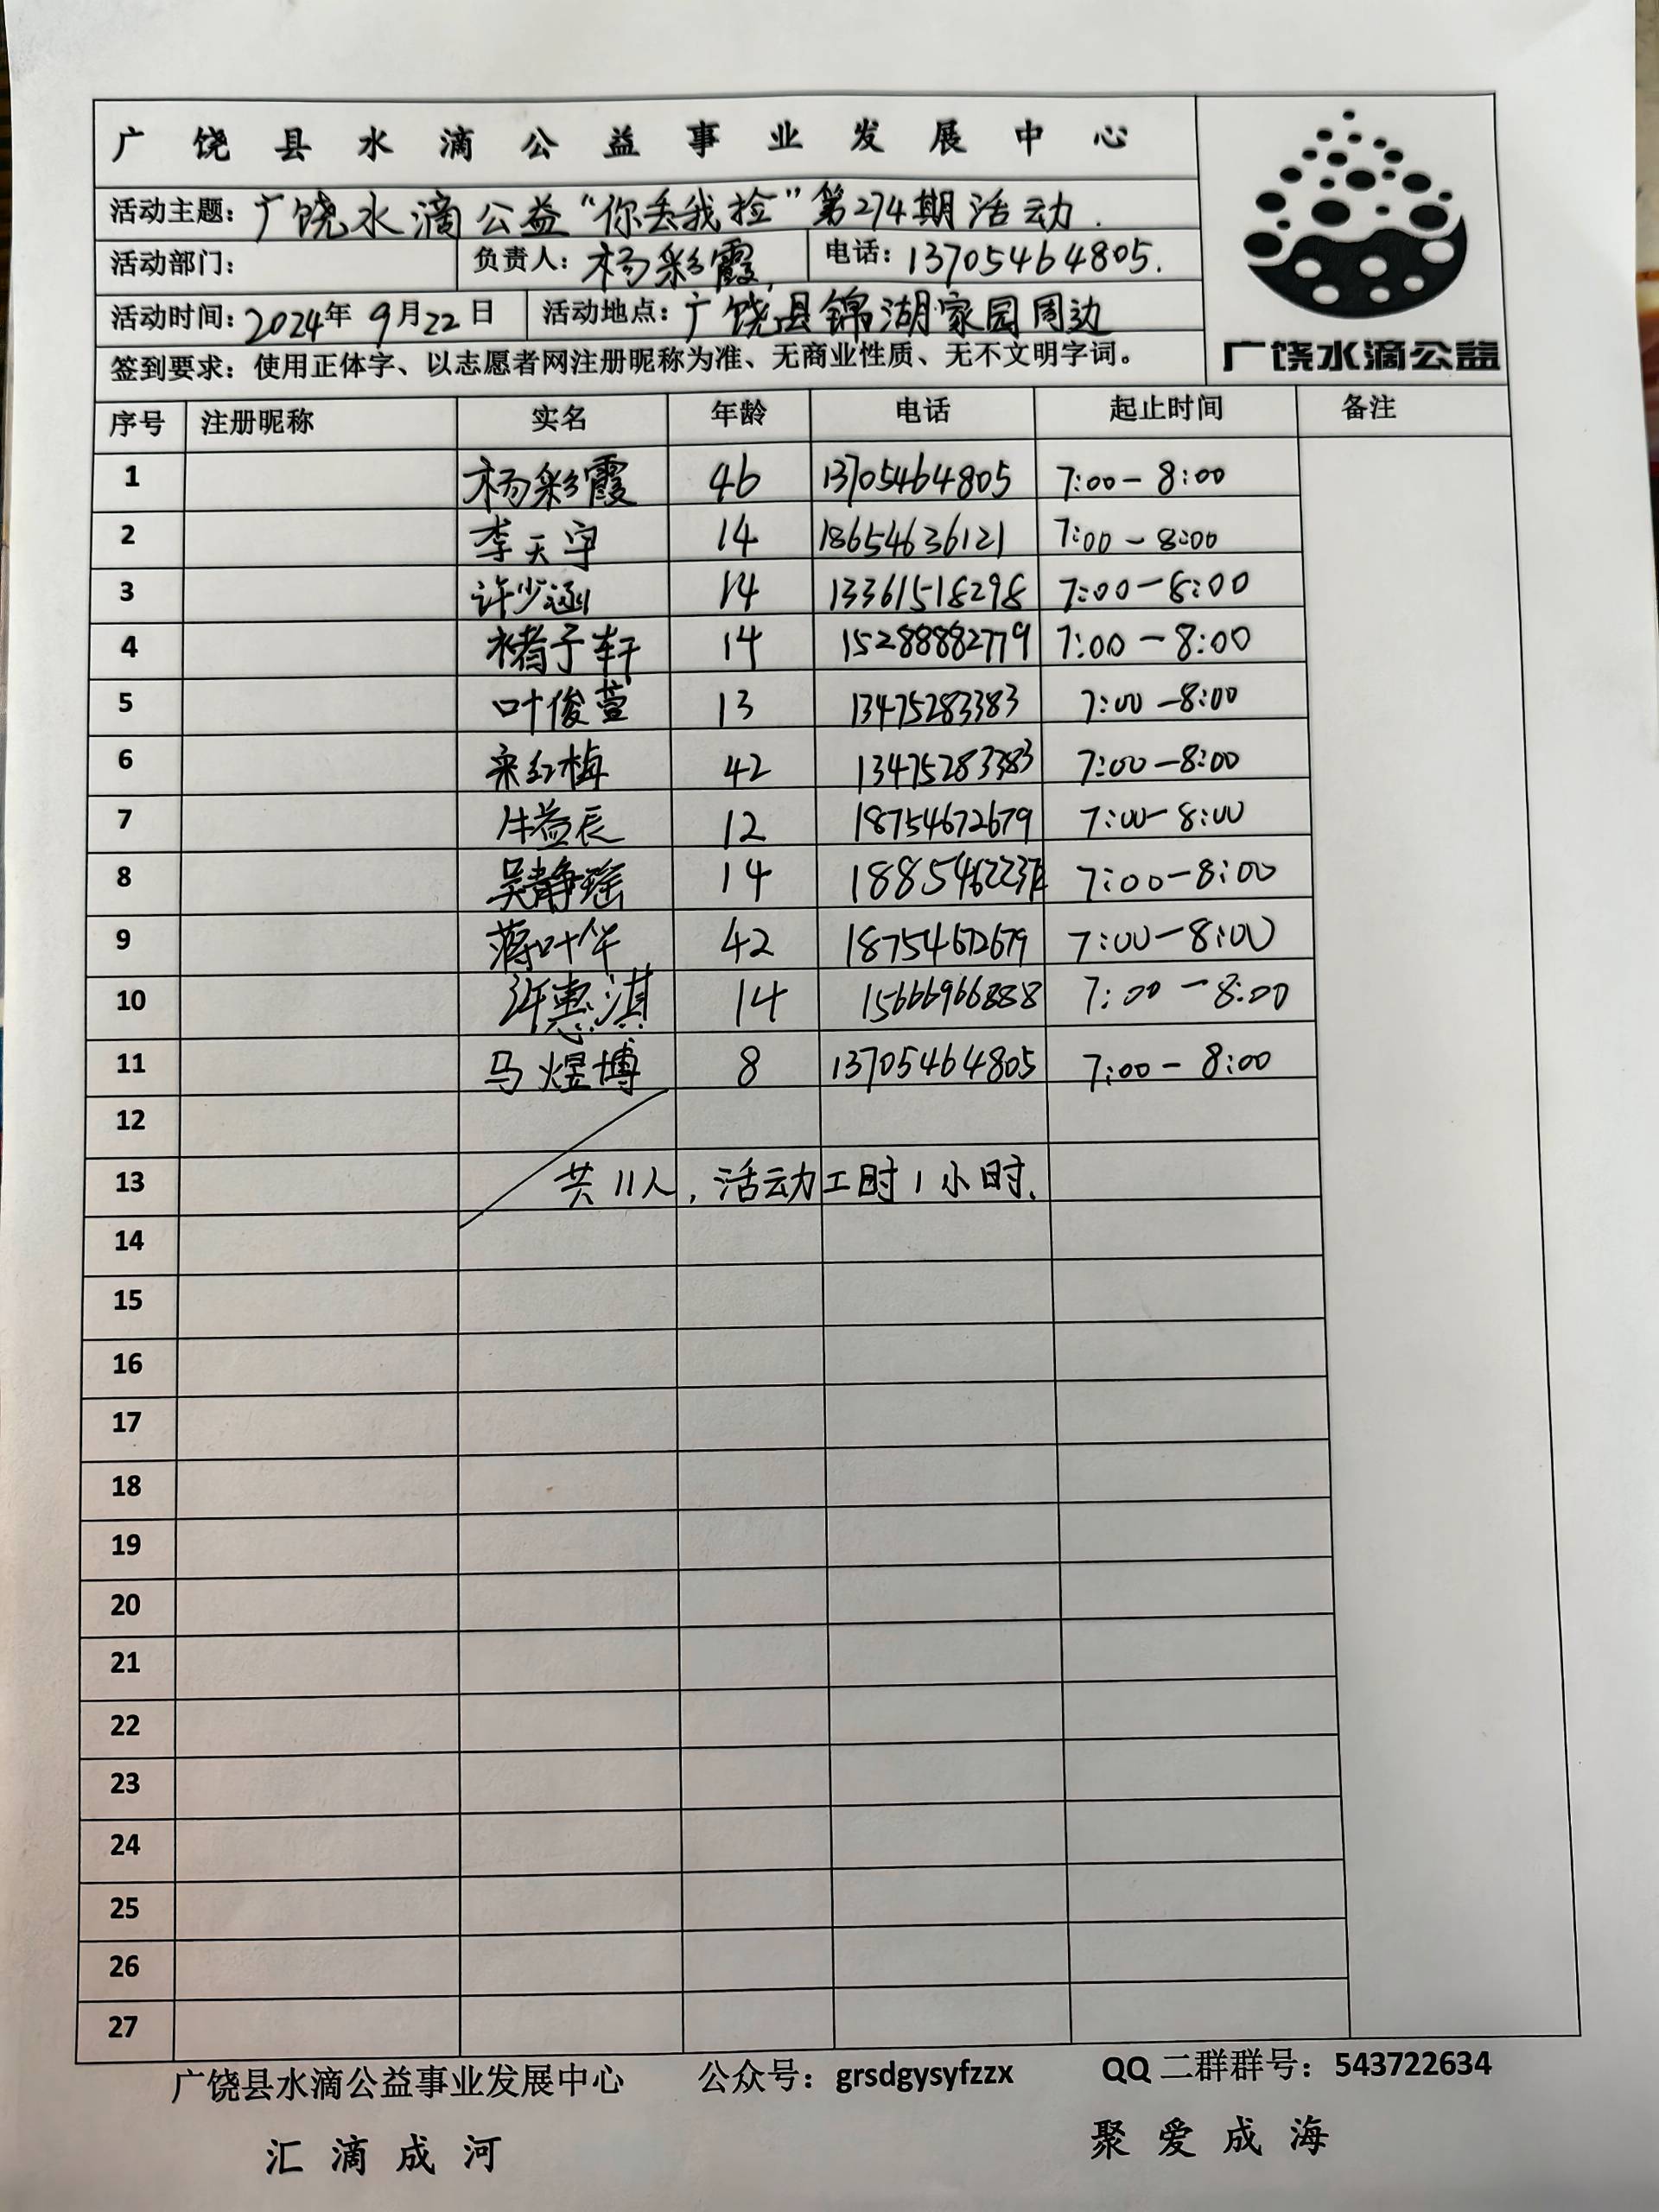 广饶县水滴公益事业发展中心
活动主题：广饶水滴公益“你丢我捡”第274期活动.
活动部门： 负责人：杨彩霞 电话：13705464805.
活动时间：2024年9月22日 活动地点：广饶县锦湖家园周边
签到要求：使用正体字、以志愿者网注册昵称为准、无商业性质、无不文明字词。
广饶水滴公益
序号 注册昵称 实名 年龄 电话 起止时间 备注
1 杨彩霞 46 13705464805 7:00-8:00
2 李天宇 14 18654636121 7:00-8:00
3 许少涵 14 13361518298 7:00-8:00
4 褚子轩 14 15288882779 7:00-8:00
5 叶俊萱 13 13475283383 7:00-8:00
6 红梅 42 13475283383 7:00-8:00
7 牛益辰 12 18754672679 7:00-8:00
8 吴静瑶 14 7:00-8:00
9 蒋叶华 42 18754672679 7:00-8:00
10 许惠淇 14 15666966888 7:00-8:00
11 马煜博 8 13705464805 7:00-8:00
12
13 共11人，活动工时1小时.
14
15
16
17
18
19
20
21
22
23
24
25
26
27
广饶县水滴公益事业发展中心 公众号：grsdgysyfzzx QQ二群群号：543722634
汇滴成河 聚爱成海